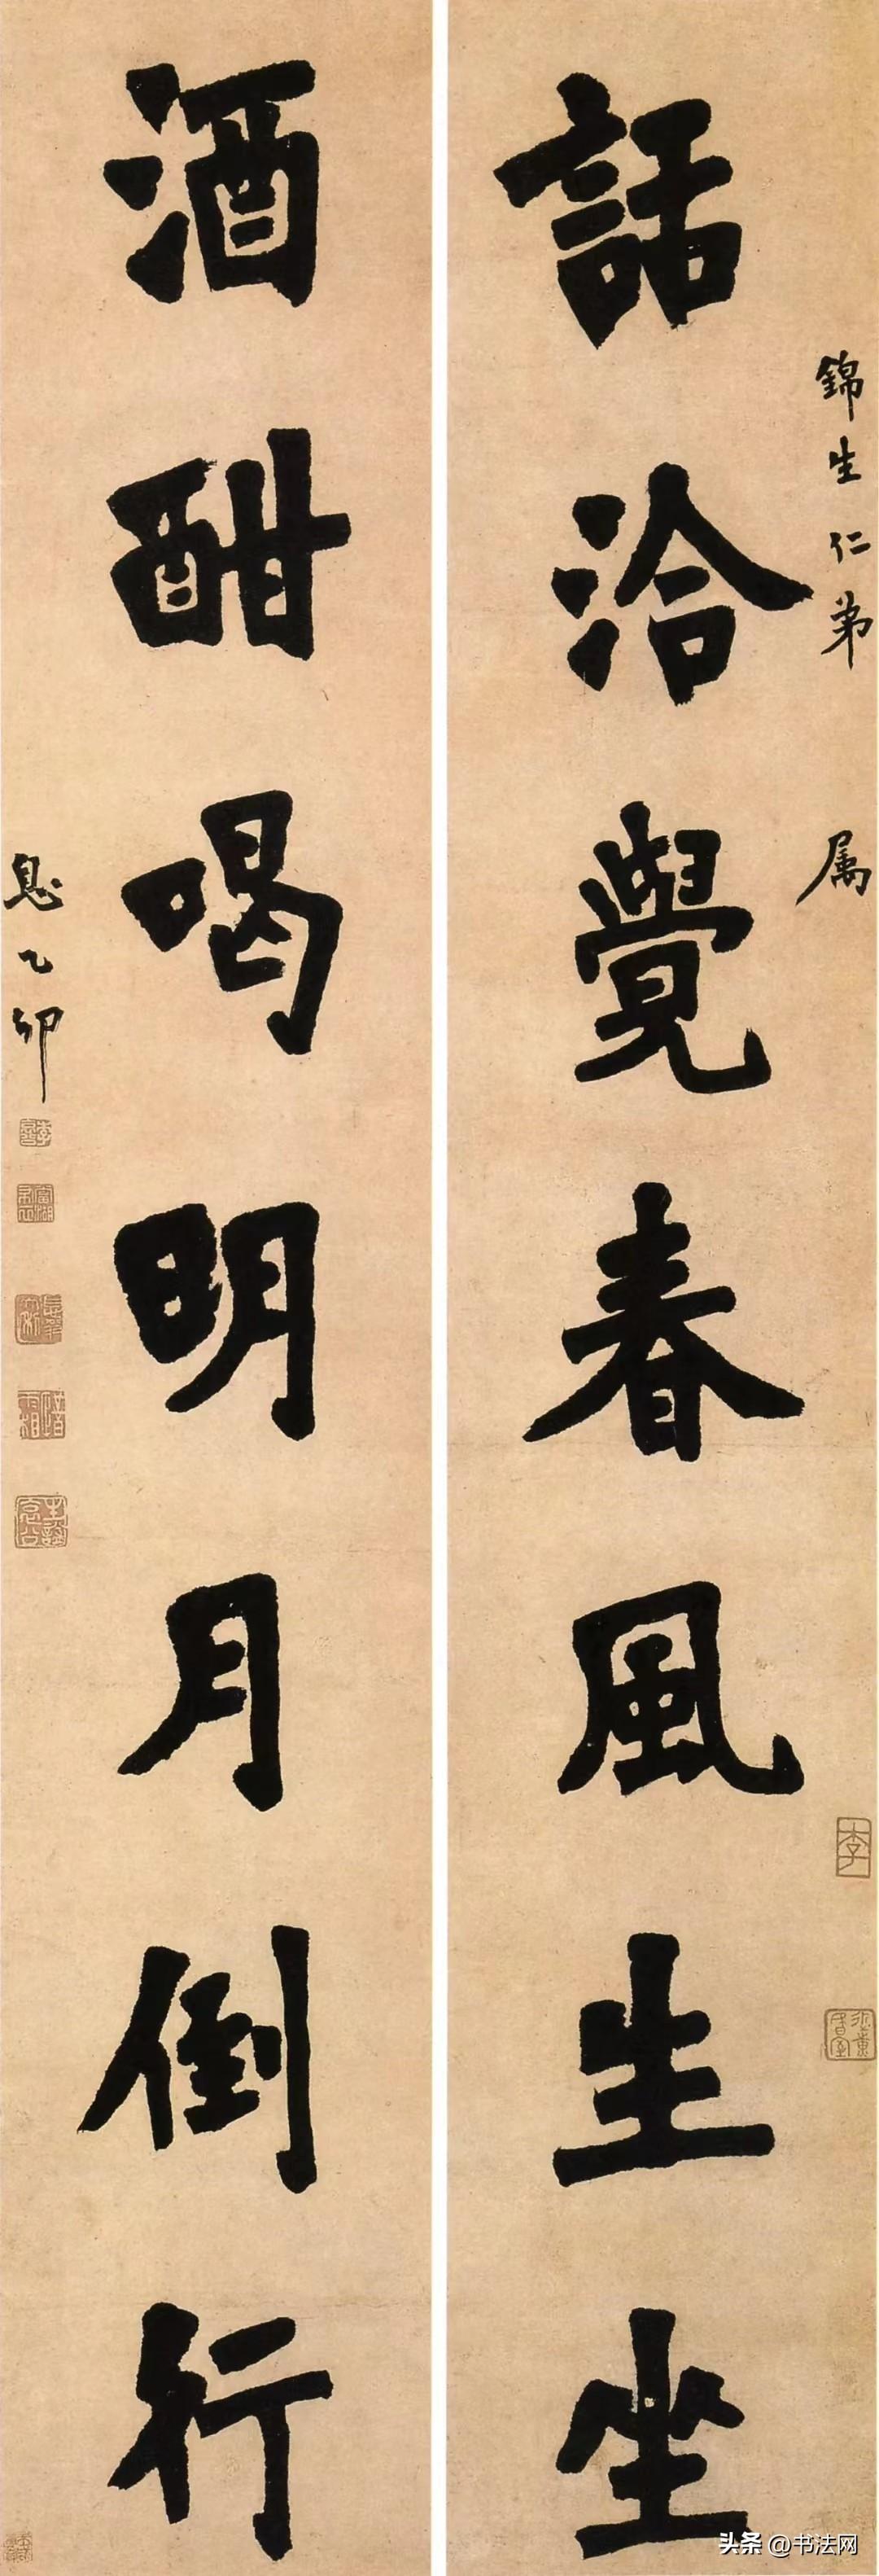 錦生仁弟 属
話洽覺春風生坐
酒酣喝明月倒行
息 乙卯
李
头条 @书法网